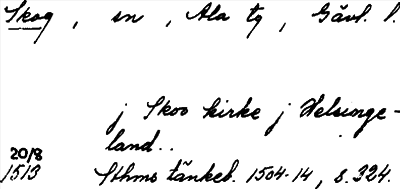 Skog, sn, Ala tg, Gävl. l.
j Skoo kirke j Helsinge-
land..
20/8
1513 Sthms tänkeb. 1504-14, s. 324.